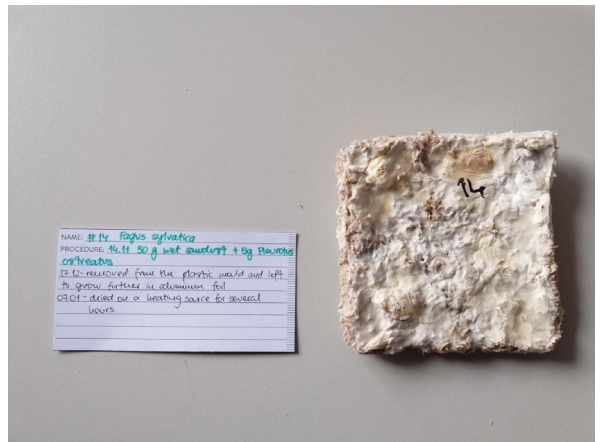 NAME: #14 Fagus sylvatica
PROCEDURE: 14.11 50 g wet sawdust + 5g Pleurotus
ostreatus
17.12- removed from the plastic mould and left
to grow further in aluminum foil
07.01 - dried on a heating source for several
hours
14